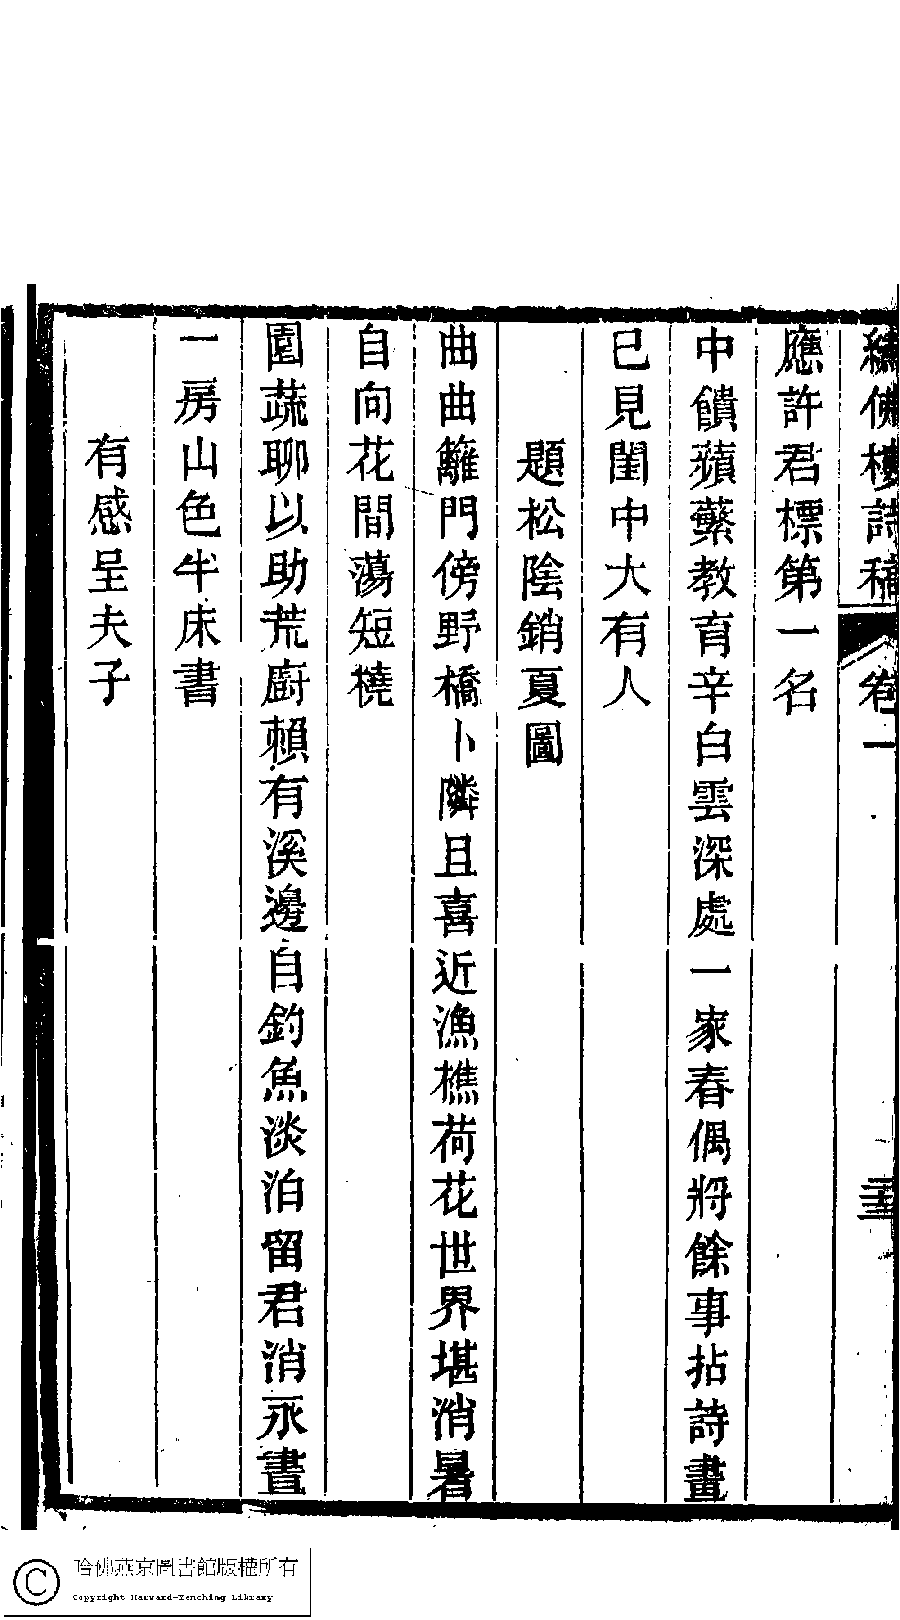 繡佛樓詩稿 卷一
應許君標第一名
中饋蘋蘩教育辛白雲深處一家春偶將餘事拈詩畫
已見閨中大有人
題松陰銷夏圖
曲曲籬門傍野橋卜隣且喜近漁樵荷花世界堪消暑
自向花間蕩短橈
園蔬聊以助荒廚賴有溪邊自釣魚淡泊留君消永晝
一房山色半床書
有感呈夫子
哈佛燕京圖書館版權所有
Copyright Harvard-Yenching Library